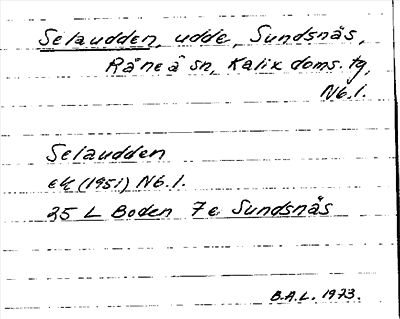 Selaudden, udde, Sundsnäs,
Råneå sn, Kalix doms. tg,
Nb.l.
Selaudden
ek (1951) Nb.l.
25 L Boden 7e Sundsnäs
B.A.L. 1973.